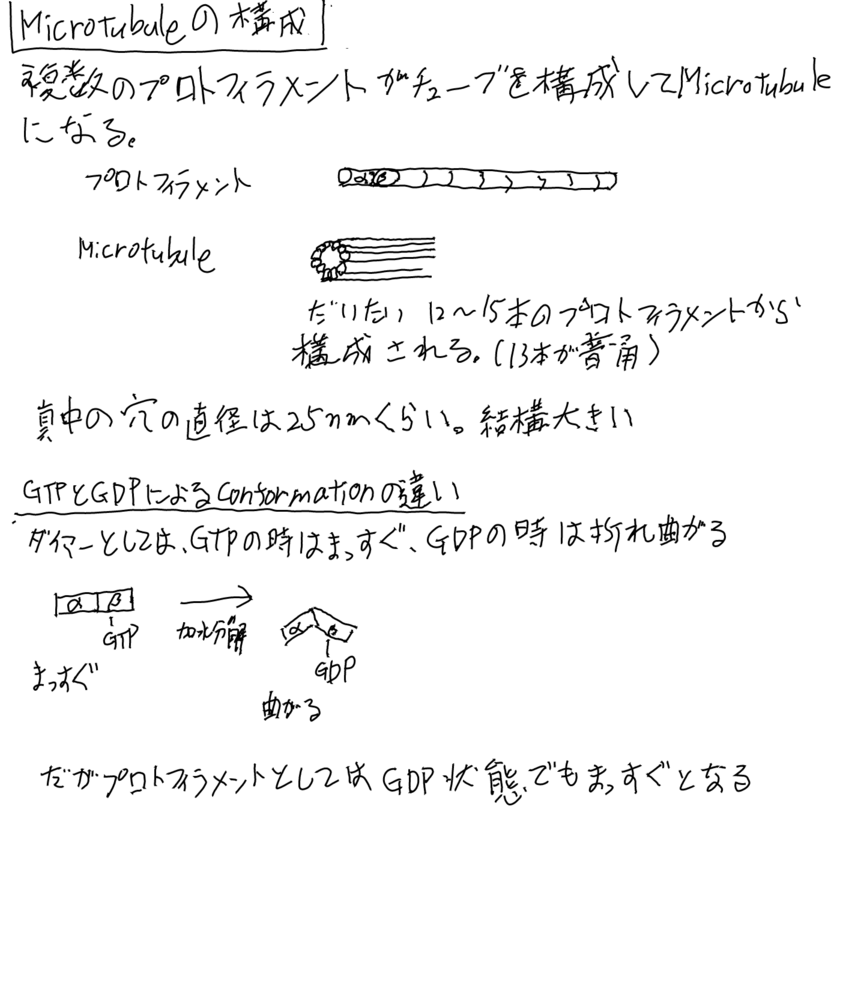 Microtubuleの構成
複数のプロトフィラメントがチューブを構成してMicrotubule
になる。
プロトフィラメント
αβ
Microtubule
だいたい12〜15本のプロトフィラメントから
構成される。(13本が普通)
真中の穴の直径は25nmくらい。結構大きい
GTPとGDPによるConformationの違い
ダイマーとしては、GTPの時はまっすぐ、GDPの時は折れ曲がる
α β
GTP
まっすぐ
加水分解
α β
GDP
曲がる
だがプロトフィラメントとしてはGDP状態でもまっすぐとなる